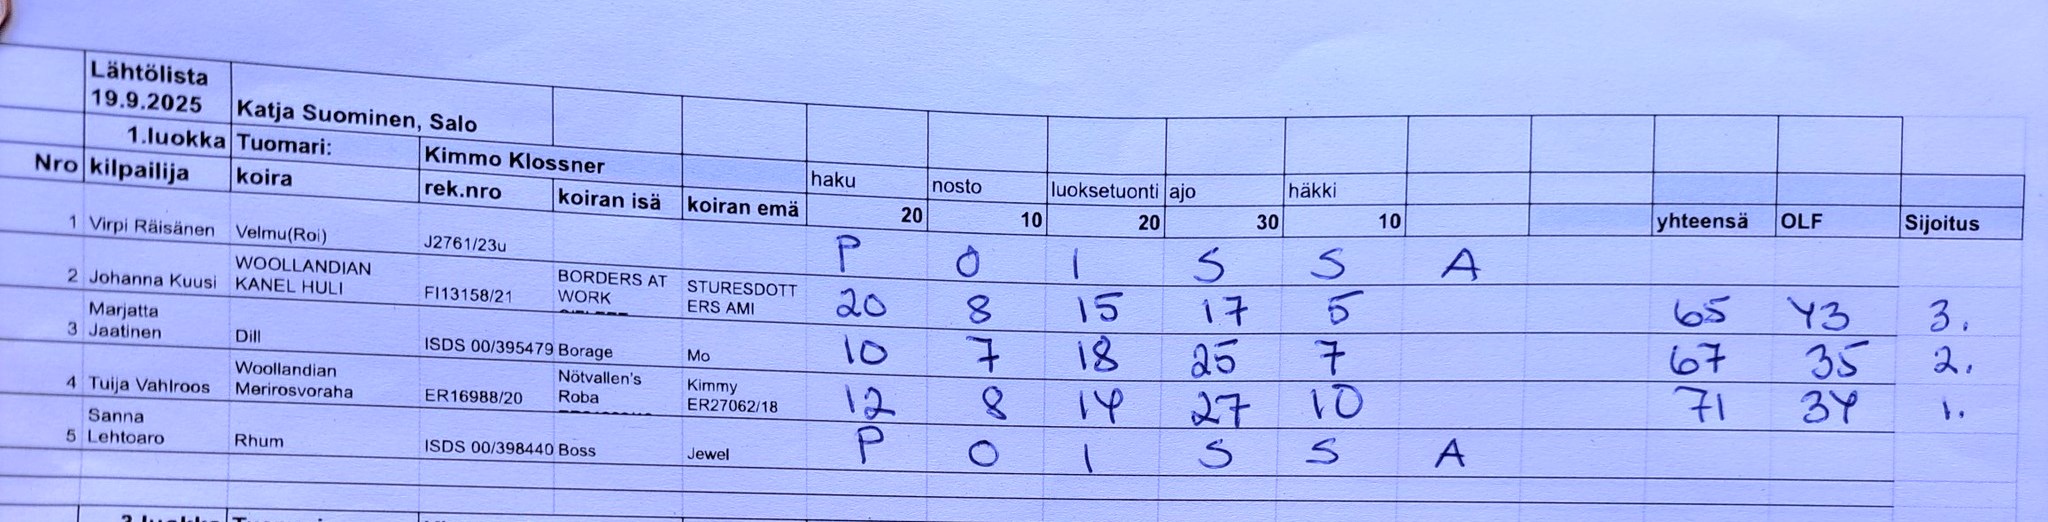 Lähtölista
19.9.2025 Katja Suominen, Salo
1.luokka Tuomari: Kimmo Klossner
Nro kilpailija koira rek.nro koiran isä koiran emä haku nosto luoksetuonti ajo häkki
20 10 20 30 10 yhteensä OLF Sijoitus
1 Virpi Räisänen Velmu(Roi) J2761/23u P O I S S A
2 Johanna Kuusi WOOLLANDIAN KANEL HULI FI13158/21 BORDERS AT WORK STURESDOTTERS AMI 20 8 15 17 5 65 43 3.
3 Marjatta Jaatinen Dill ISDS 00/395479 Borage Mo 10 7 18 25 7 67 35 2.
4 Tuija Vahlroos Woollandian Merirosvoraha ER16988/20 Nötvallen's Roba Kimmy ER27062/18 12 8 14 27 10 71 34 1.
5 Sanna Lehtoaro Rhum ISDS 00/398440 Boss Jewel P O I S S A